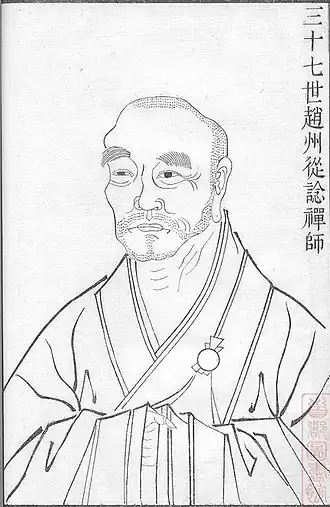 三十七世趙州從諗禪師